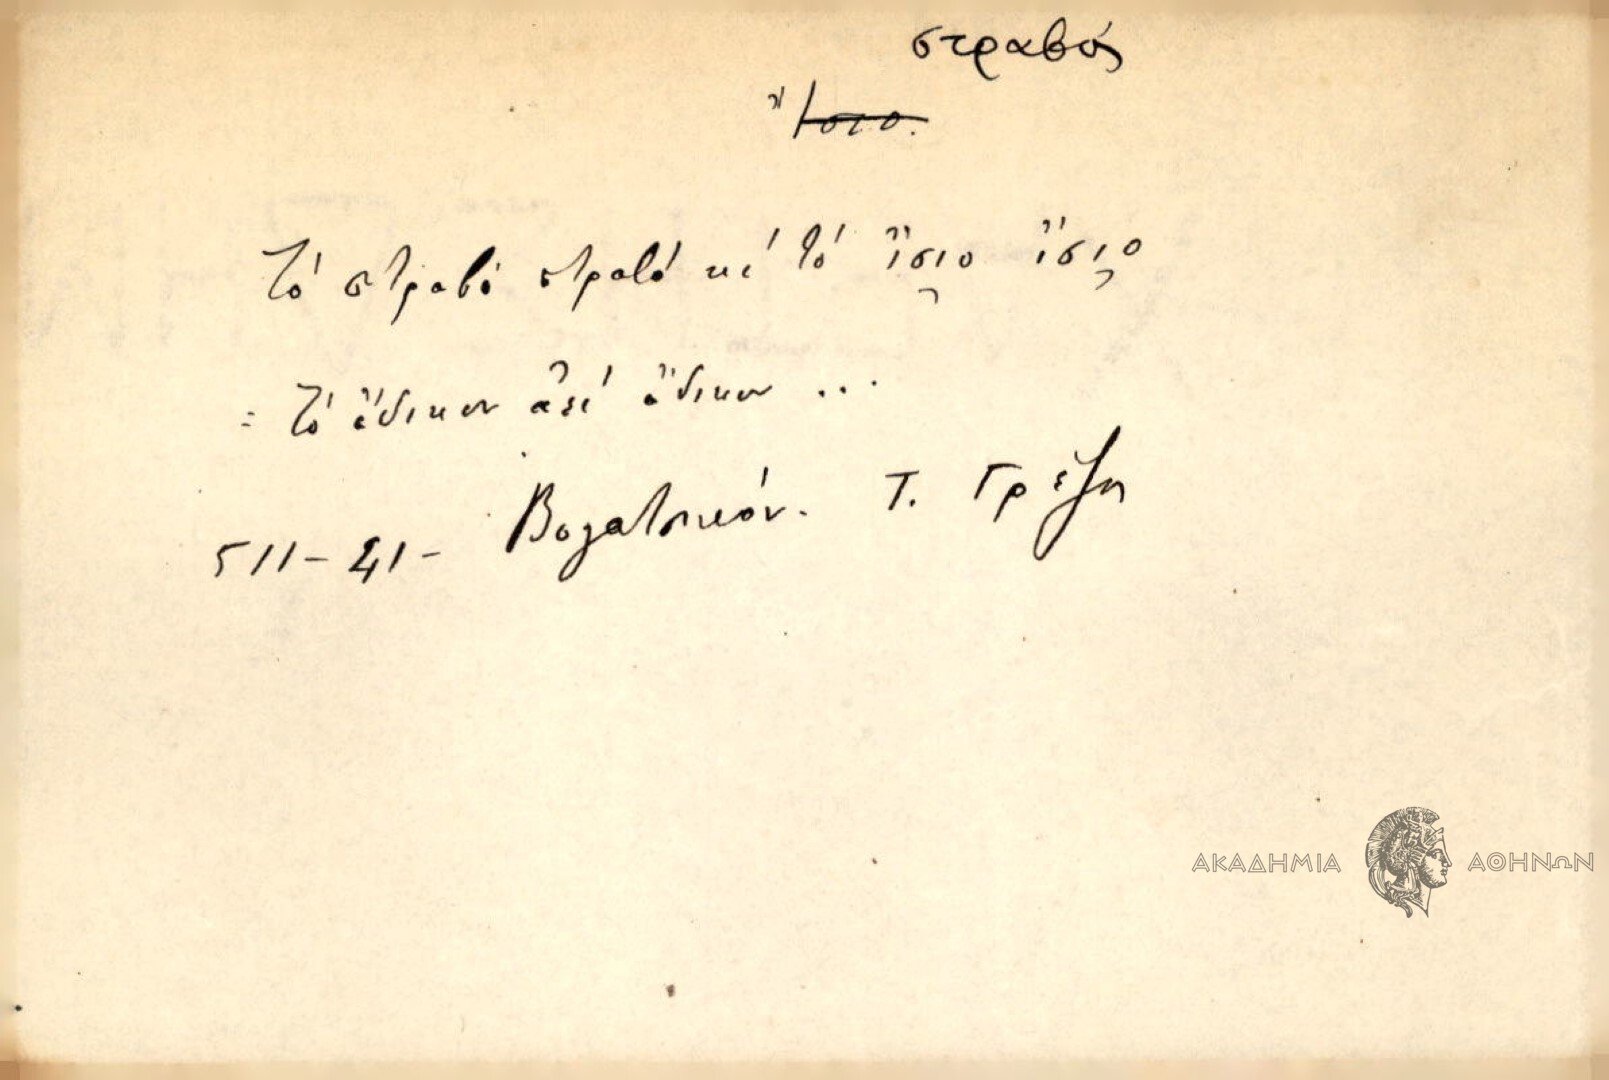 στραβός
Ἴσιο.
Τό στραβό στραβό κι τό ἴσιο ἴσιο
= Τό ἄδικον ἀεί ἄδικον ...
511-41- Βογατσικόν. Τ. Γρέζη
ΑΚΑΔΗΜΙΑ ΑΘΗΝΩΝ